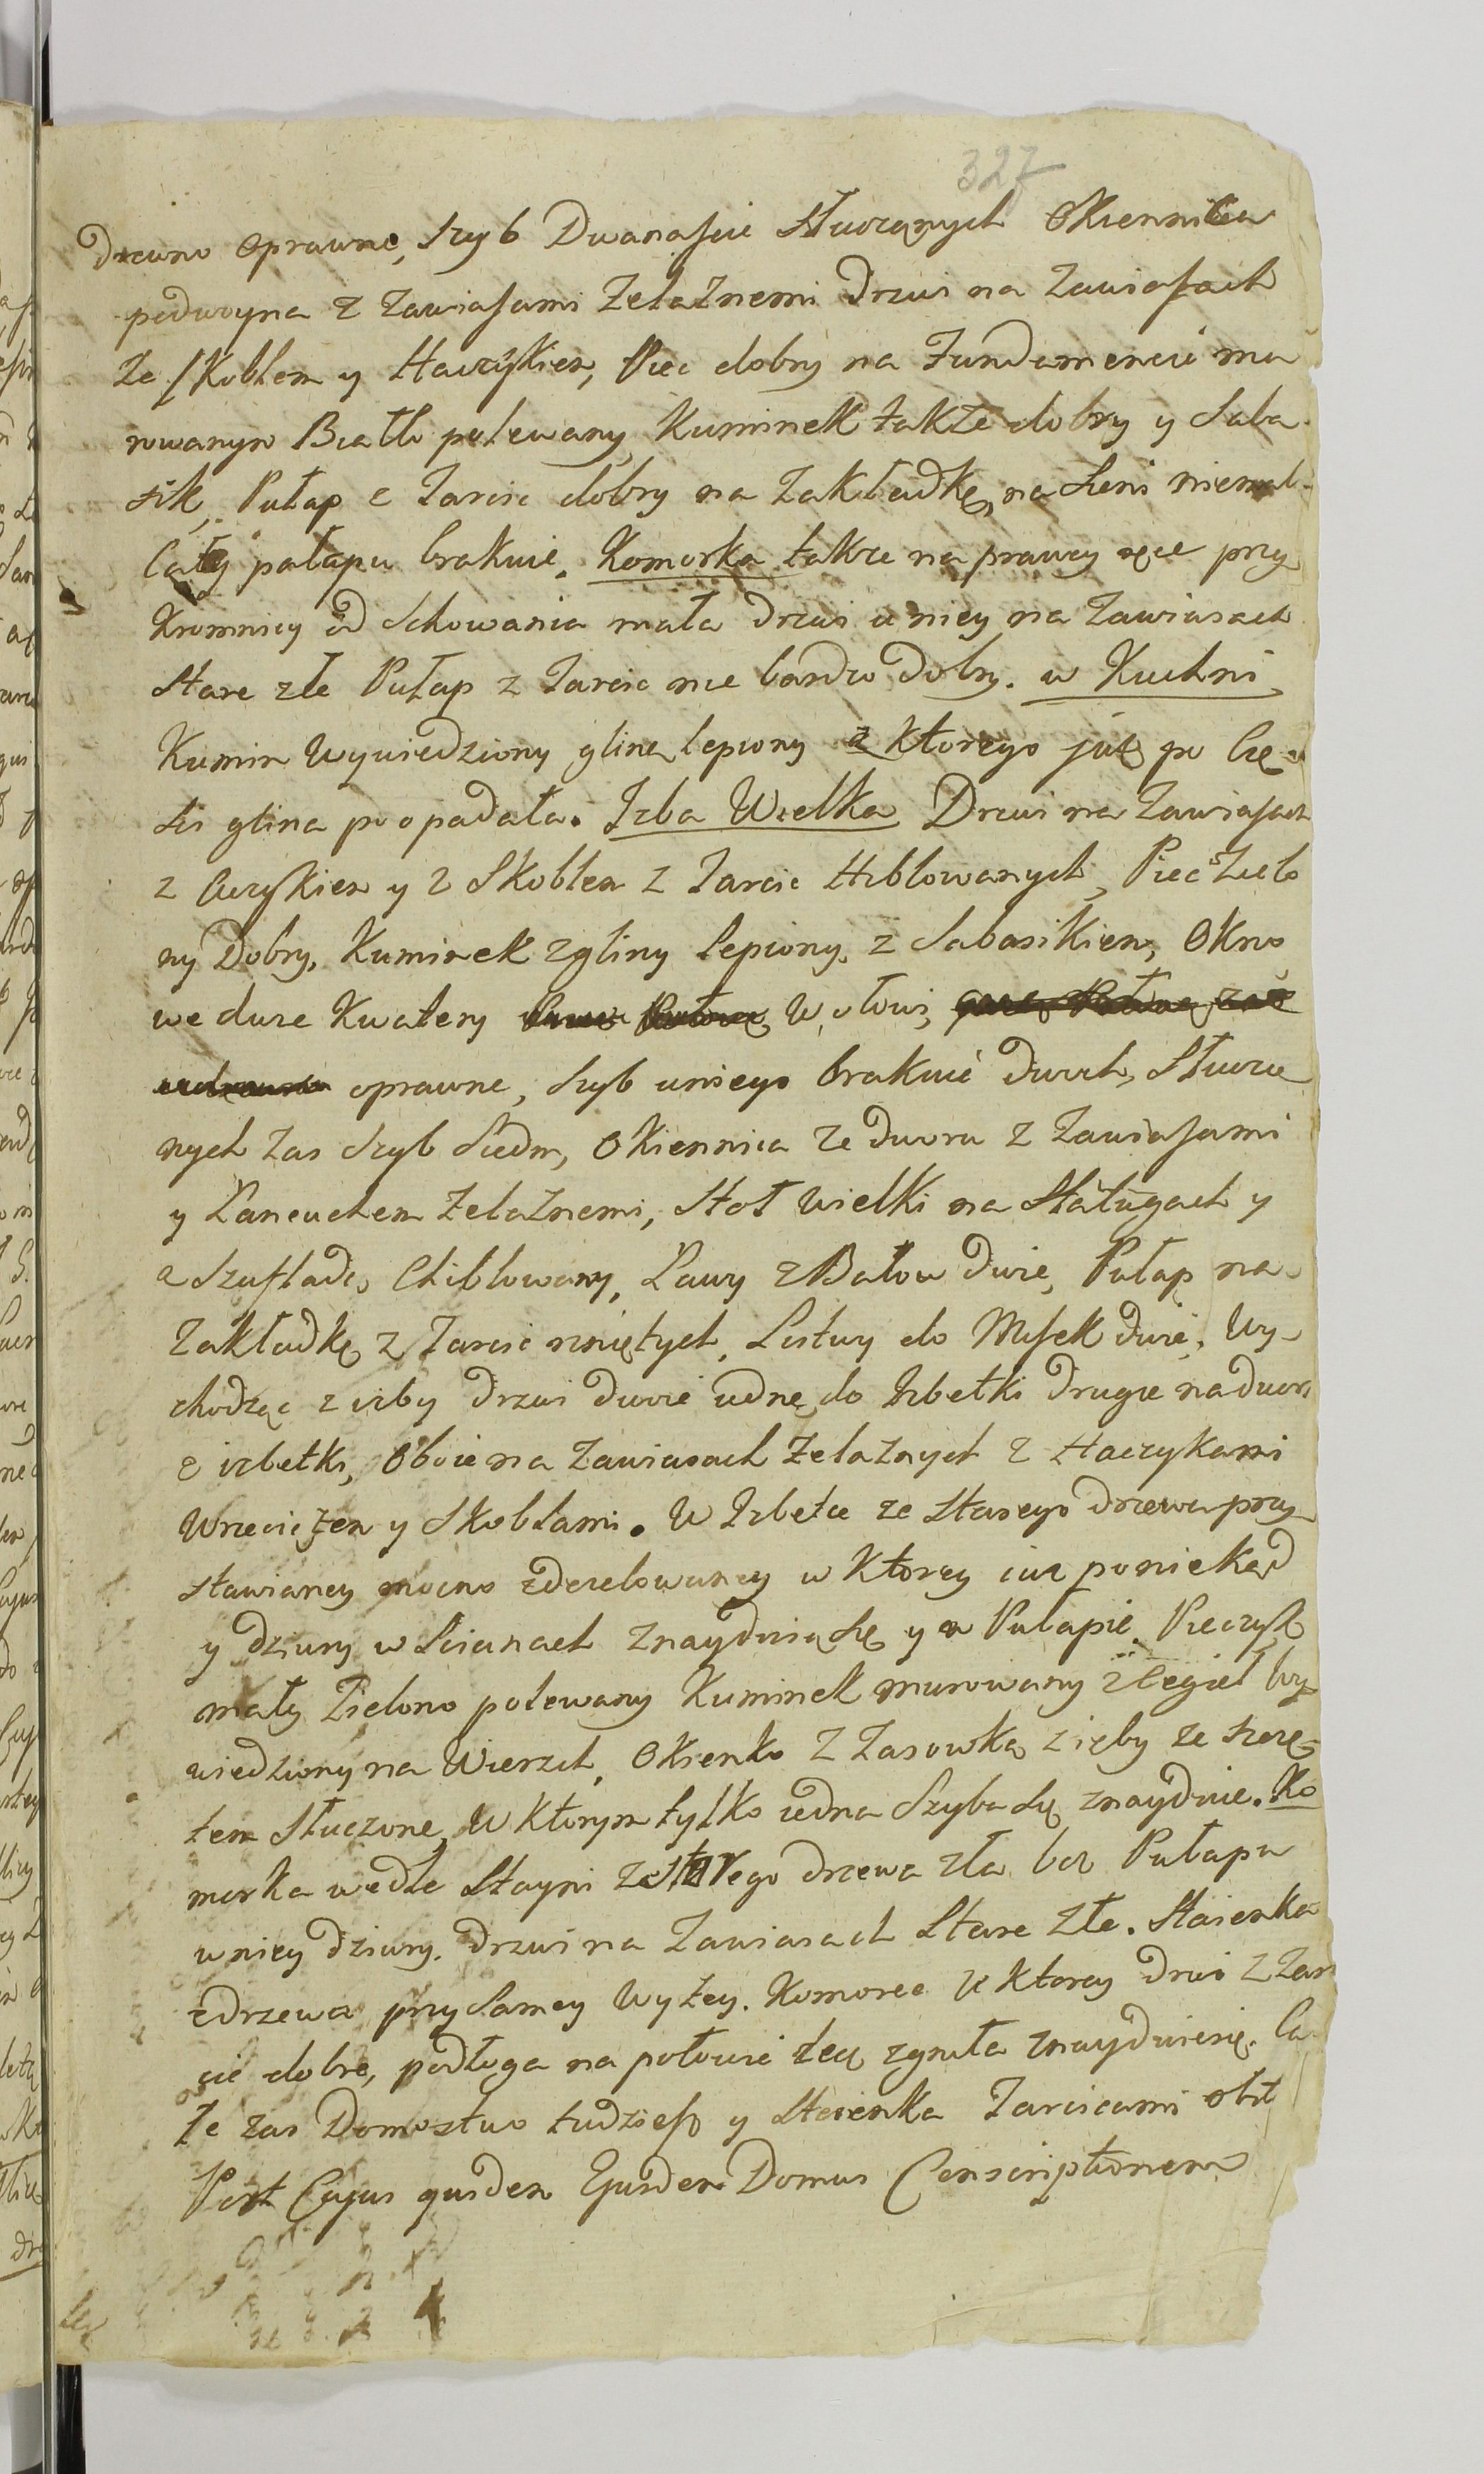 327
Drewno oprawne, Szyb Dwanascie Stłuczonych Okiennica
podwoyna z zawiasami Zelaznemi Drzwi na Zawiasach
Ze Skoblem y Haczykiem, Piec dobry na Fundamencie mu
rowanym Biało polewany, Kuminek także dobry y Saba
sik, Pułap z Tarcic dobry na Zakładkę, na Sieni niemal
Całey pałapu brakuie. Komorka takze na prawey ręce przy
Kromnicy od Schowania mała Drzwi u niey na Zawiasach
Stare złe Pułap z Tarcic nie bardzo Dobry. w Kuchni
Kumin Wywiedziony gliną lepiony z Ktorego już po Czę
sci glina poopadała. Izba Wielka Drzwi na Zawiasach
z Haczykiem y 2 Skoblem z Tarcic Hiblowanych, Piec Zielo
ny Dobry, Kuminek z gliny lepiony, z Sabasikiem, Okno
we dwie Kwatery W ołow,
oprawne, Szyb u niego brakuie dwoch, Stłuczo
nych Zas Szyb Siedm, Okiennica ze dworu z Zawiasami
y Łancuchem Zelaznemi, Stoł Wielki na Stalugach y
z Szufladą Chiblowany, Ławy z Balow dwie, Pułap na
Zakładkę z Tarcic rzniętych, Listwy do Misek dwie. Wy-
chodząc z izby drzwi dwoie iedne do Izbetki drugie na dwor
z izbetki, oboie na Zawiasach Zelaznych z Haczykami
Wrzeciążem y Skoblami. W Izbetce ze Starego drzewa przy
stawianey mocno zdezelowaney w Ktorey iuz poniekąd
y dziury w Scianach Znayduią się y w Pułapie. Piecyk
mały Zielono polewany Kuminek murowany z Cegieł wy
wiedziony na Wierzch, Okienko z Zasowką z izby ze szczę
tem Stłuczone, w Ktorym tylko iedna Szyba się znayduie. Ko
morka wedle Stayni ze starego drzewa zła bez Pułapu
w niey dziury. drzwi na Zawiasach Stare Złe. Staienka
z drzewa przy samey Wyżey. Komorce w Ktorey drzwi z Tar
cic dobre, podłoga na połowie lecz zgniła znayduiesię. Ca
łe zas Domostwo tudziesz y Staienka Tarcicami obit
Post Cujus quidem Ejusdem Domus Conscriptionem